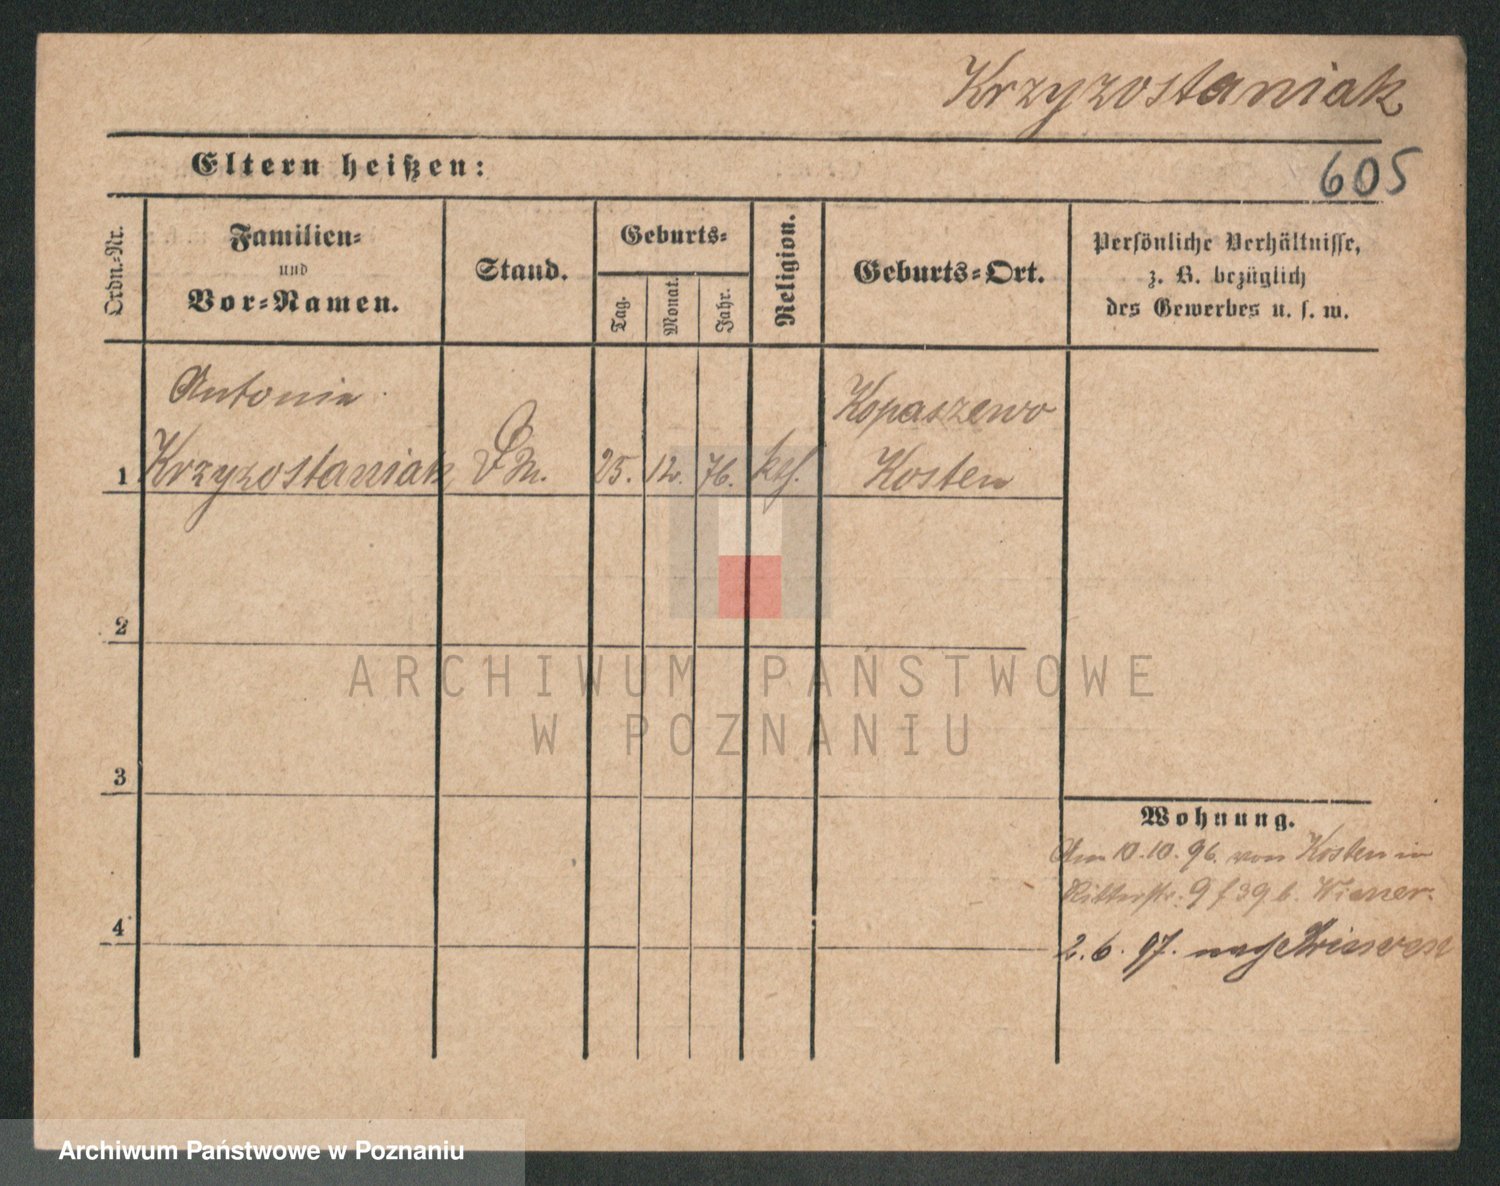 Krzyzostaniak
Eltern heißen:
605
Ordn.-Nr.
Familien-
und
Vor-Namen.
Stand.
Geburts-
Tag.
Monat.
Jahr.
Religion.
Geburts-Ort.
Persönliche Verhältnisse,
z. B. bezüglich
des Gewerbes u. s. w.
Antonie
Kopaszewo
1 Krzyzostaniak 25. 12. 76. kth. Kosten
2
ARCHIWUM PAŃSTWOWE
W POZNANIU
3
Wohnung.
Am 10.10.96. von Kosten in
Ritterstr. 9 f 39 b. Wiener.
4
2.6.97. nach
Archiwum Państwowe w Poznaniu